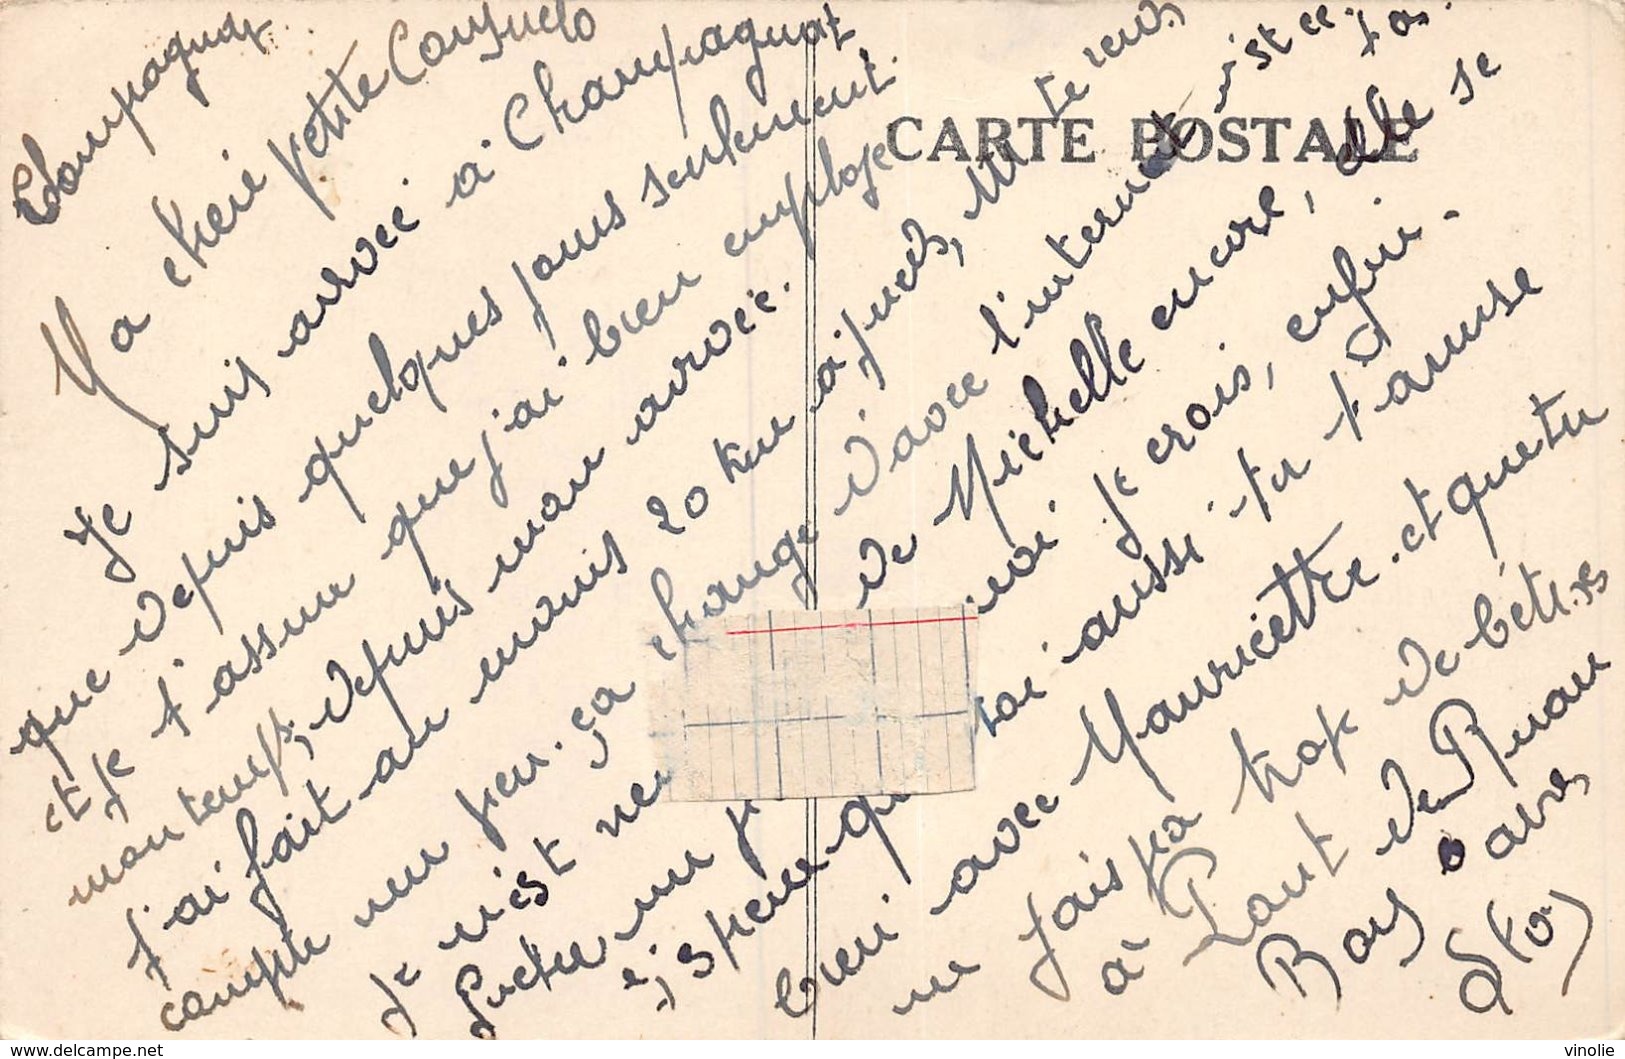 Champagnat
Ma cheri petite Consuelo
Je suis arivée à Champagnat
que depuis quelques jours seulement.
et je t'assure que j'ai bien employé
mon temps, depuis mon arivée.
j'ai fait au moins 20 km à pieds,
compte un peu. ça change d'avec l'internat
Je n'est de Michelle encore, elle se
un moi je crois, enfin.
j'espere que toi aussi tu t'amuse
bien avec Mauricette. et que tu
ne fais pas trop de bétises
à Pont de Ruan
Bons
CARTE POSTALE
www.delcampe.net
vinolie